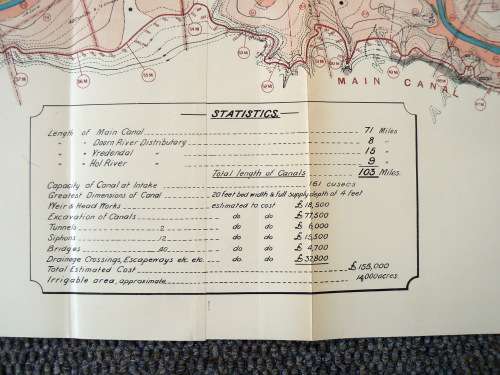 57 M
56 M
55 M
MAIN CANAL
STATISTICS.
Length of Main Canal 71 Miles
" " Doorn River Distributary 8 "
" " Vredendal " 15 "
" " Hol River " 9 "
Total length of Canals 103 Miles.
Capacity of Canal at Intake 161 cusecs
Greatest Dimensions of Canal 20 feet bed width & full supply depth of 4 feet
Weir & Head Works estimated to cost £18,500
Excavation of Canals do do £77,500
Tunnels 2 do do £6,000
Siphons 12 do do £15,500
Bridges 40 do do £4,700
Drainage Crossings, Escapeways etc. etc. do do £32,800
Total Estimated Cost £155,000
Irrigable area, approximate 14,000 acres.